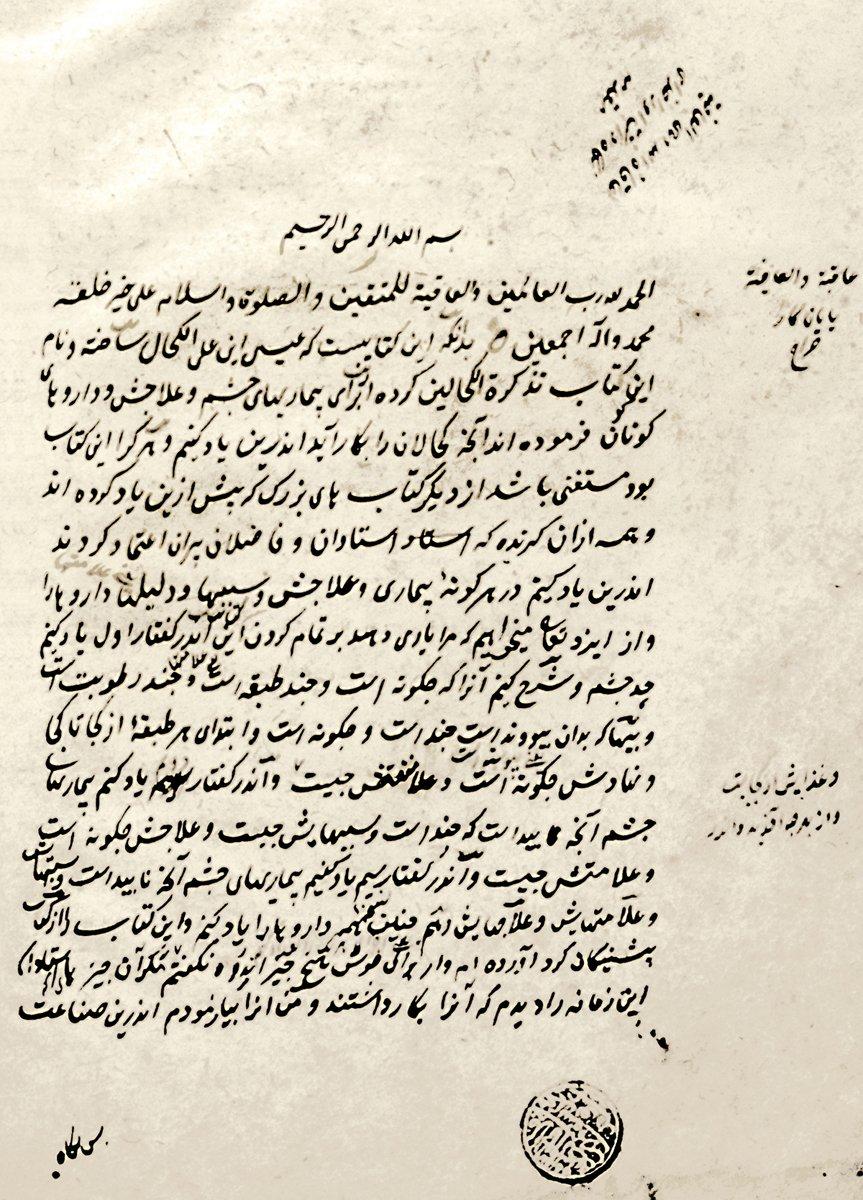 بسم الله الرحمن الرحیم
الحمد لله رب العالمین والعاقبة للمتقین والصلوة والسلام علی خیر خلقه
محمد وآله اجمعین بدانکه این کتابیست که عیسی ابن علی الکحال ساخته و نام
این کتاب تذکرة الکحالین کرده از برای بیماریهای چشم و علاجش و داروهای
کوناکون فرموده اند آنچه کحالان را بکار آید اندرین یاد کنیم و هر کرا این کتاب
بود مستغنی باشد از دیگر کتاب های بزرک که پیش ازین یاد کرده اند
و همه از آن کیرنده که استادان و فاضلان بران اعتماد کردند
اندرین یاد کنیم در هر کونهٔ بیماری و علاجش و سببها و دلیلها داروها را
و از ایزد تعالی میخواهیم که مرا یاری دهد بر تمام کردن این کتاب اندر کفتار اول یاد کنیم
حد چشم و شرح کنیم آنرا که چکونه است و چند طبقه است و چند رطوبت است
و پیها که بدان پیوونداست چند است و چکونه است و ابتدای هر طبقهٔ از کجا تا کجا
و نهادش چکونه است و منفعتش چیست و اندر کفتار دوم یاد کنم بیماریهای
چشم آنچه پیداست که چند است و سببهایش چیست و علاجش چکونه است
و علامتش چیست و اندر کفتار سیم یاد کنیم بیماریهای چشم آنچه ناپیداست و سببهاش
و علامتهایش و علاجهایش داروها را یاد کنیم و این کتاب را از
پیشینیکان کرد آورده ام و از خویش هیچ چیز نکفتم مکر آن چیز که استادان
این زمانه را دیدم که آنرا بکار داشتند و من آنرا بیازمودم اندرین صناعت
عاقبة والعافیة
پایان کار